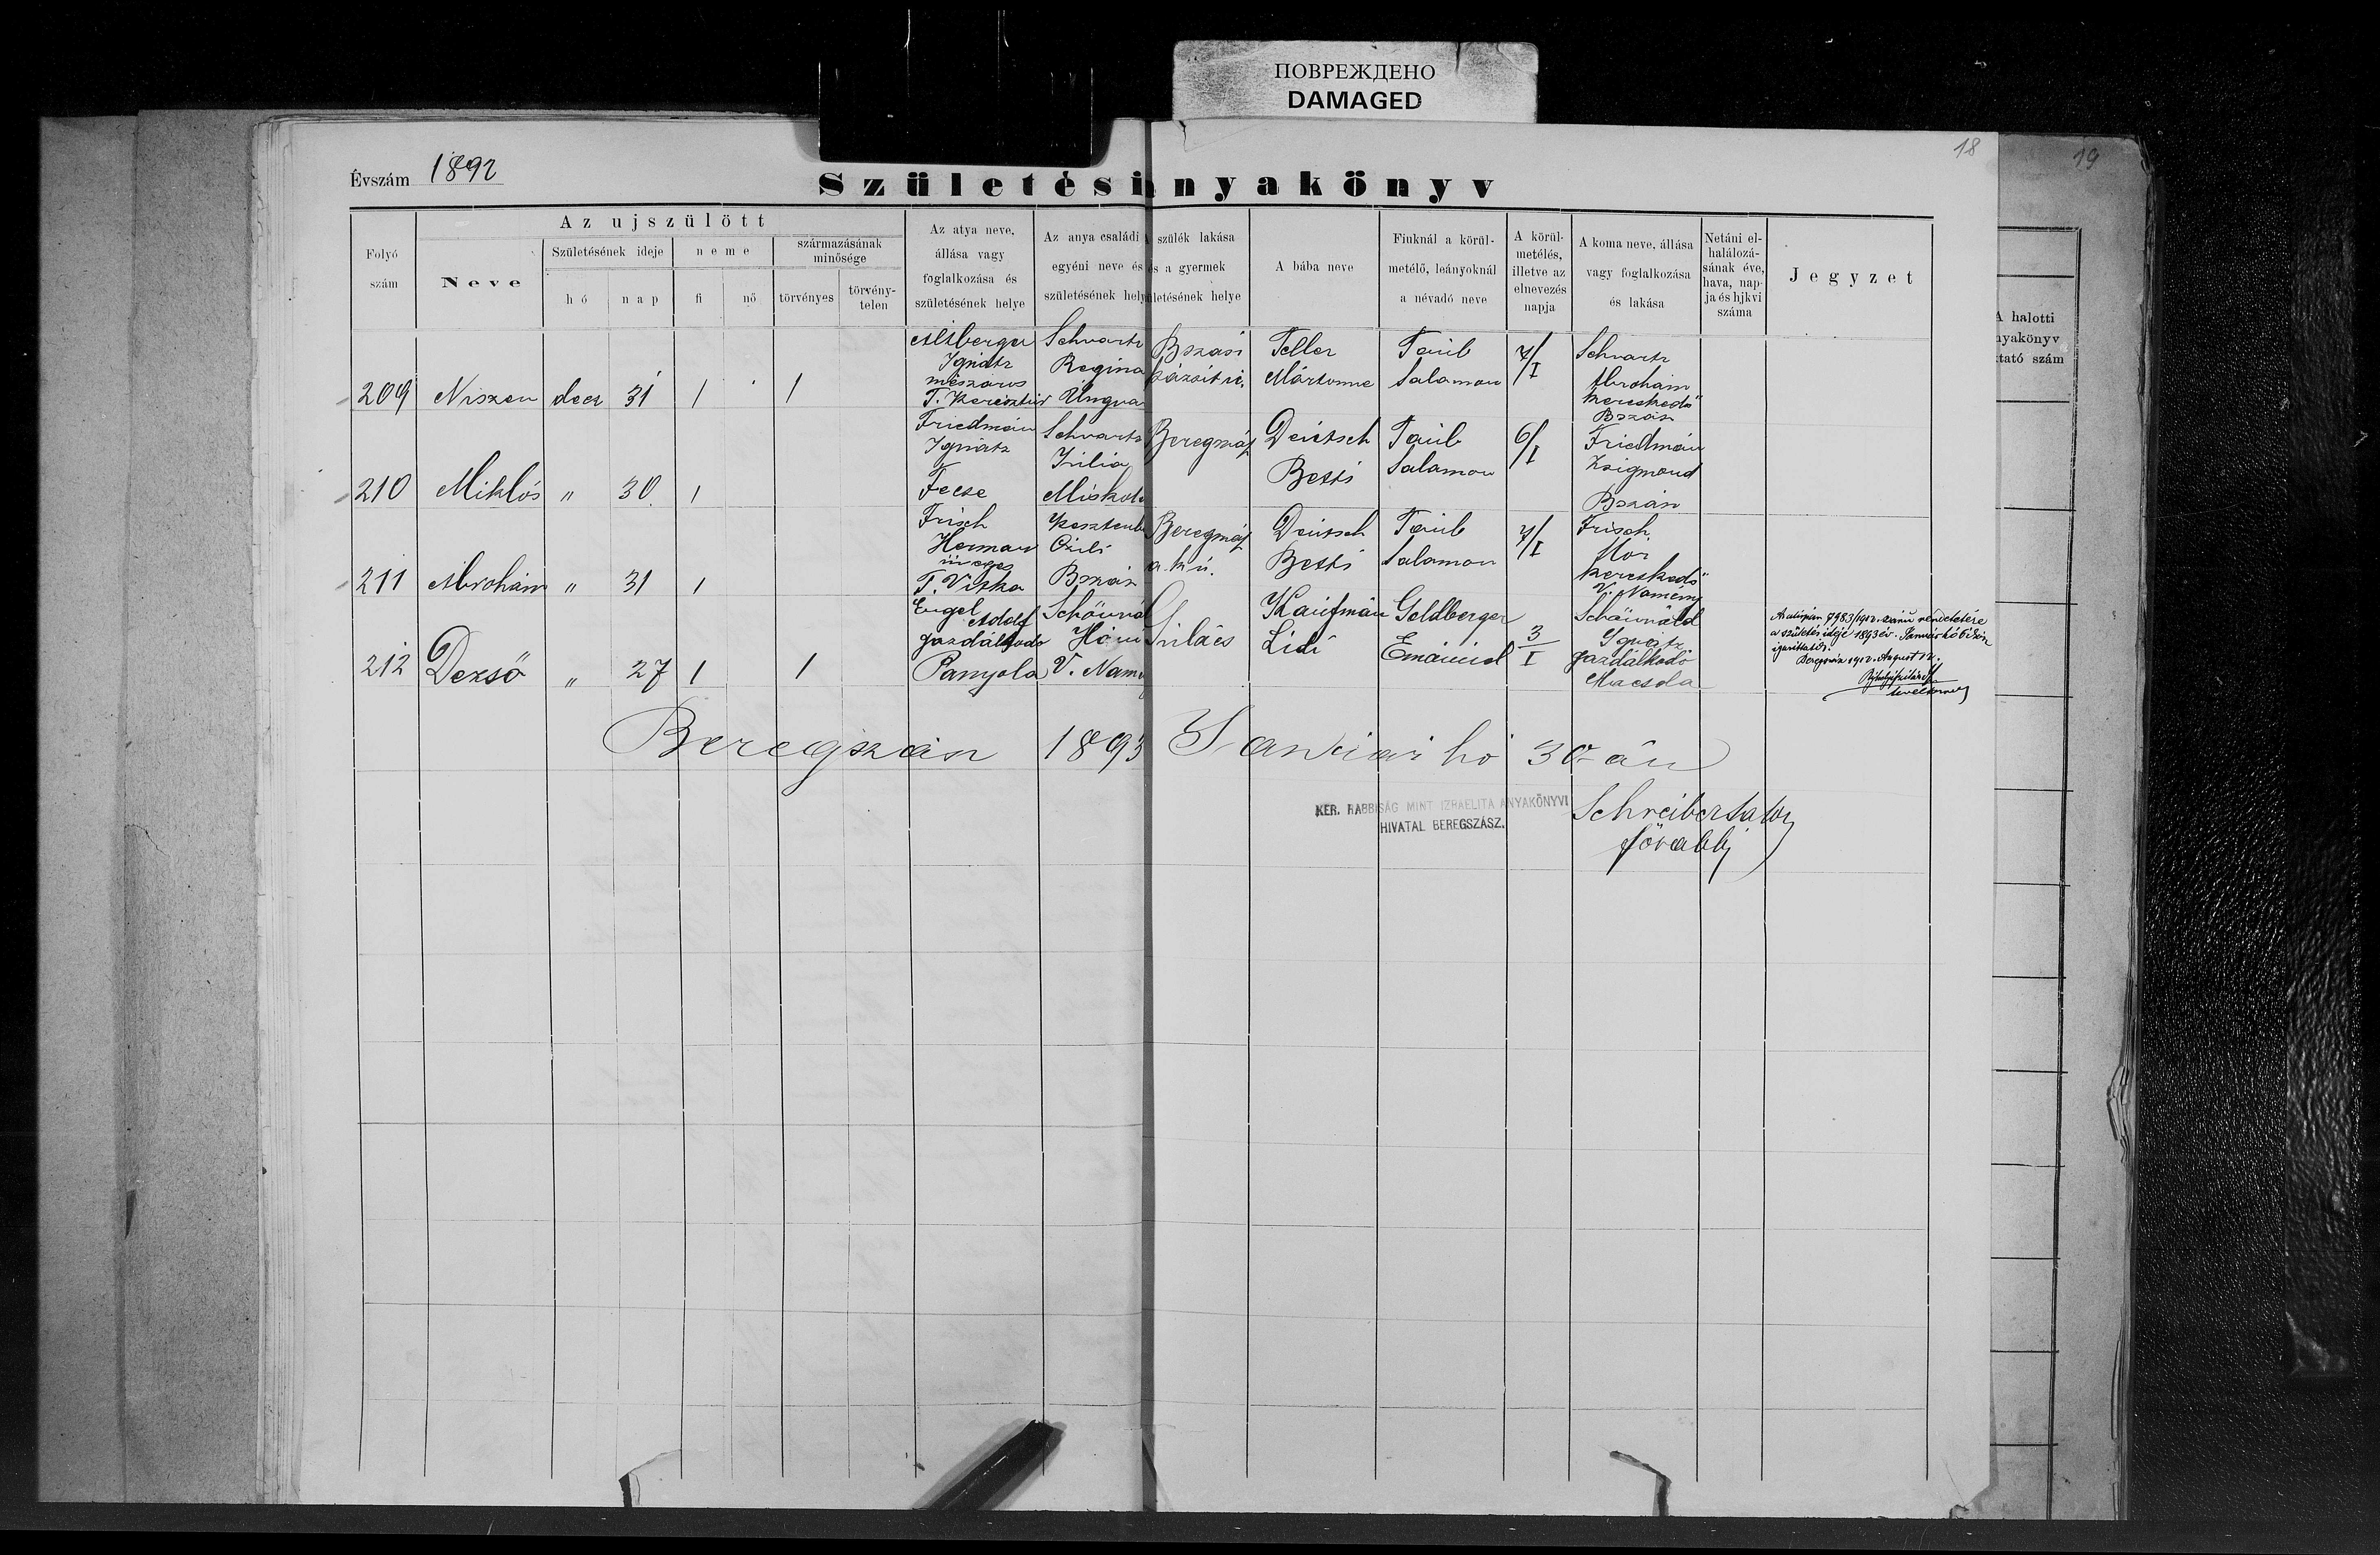 ПОВРЕЖДЕНО
DAMAGED
18
19
Évszám 1892
Születési anyakönyv
Folyó szám
Az ujszülött
Neve
Születésének ideje
hó
nap
neme
fi
nő
származásának minősége
törvényes
törvény-telen
Az atya neve, állása vagy foglalkozása és születésének helye
Az anya családi
egyéni neve és
születésének hely
szülék lakása
és a gyermek
születésének helye
A bába neve
Fiuknál a körül-metélő, leányoknál a névadó neve
A körül-metélés, illetve az elnevezés napja
A koma neve, állása vagy foglalkozása és lakása
Netáni el-halálozá-sának éve, hava, nap-ja és hjkvi száma
Jegyzet
A halotti
nyakönyv
tató szám
209 Niszen decz 31 1 1
Ignátz
mészáros
T. Keresztúr
Schvartz
Regina
Ungvá
Bszász
Teller
Mártonné
Taub
Salamon
7/I
Schvartz
Abrohám
kereskedő
Bszász
210 Miklós " 30 1
Friedmán
Ignátz
Fecse
Schvartz
Júlia
Miskolc
Beregszász
Deutsch
Betti
Taub
Salamon
6/I
Friedmán
Zsigmond
Bszász
211 Abrohám " 31 1
Frisch
Herman
üveges
T. Viska
Czili
Bszász
Beregszász
Deutsch
Betti
Taub
Salamon
7/I
Frisch
Mór
kereskedő
V. Namény
212 Dezső " 27 1 1
Engel
Adolf
gazdálkodó
Panyola
Háni
V. Namé
Kaufmán
Lidi
Goldberger
Emánuel
3/I
Ignátz
gazdálkodó
Macsola
Az alispán 7983/1912. számú rendeletére
a születés idéje 1893 év. Január hó 6ikán
igazíttatott.
Beregszász 1912. August 12.
Beregszász 1893 Januar hó 30-án
KER. RABBISÁG MINT IZRAELITA ANYAKÖNYVI
HIVATAL BEREGSZÁSZ.
Schreiber
főrabbi